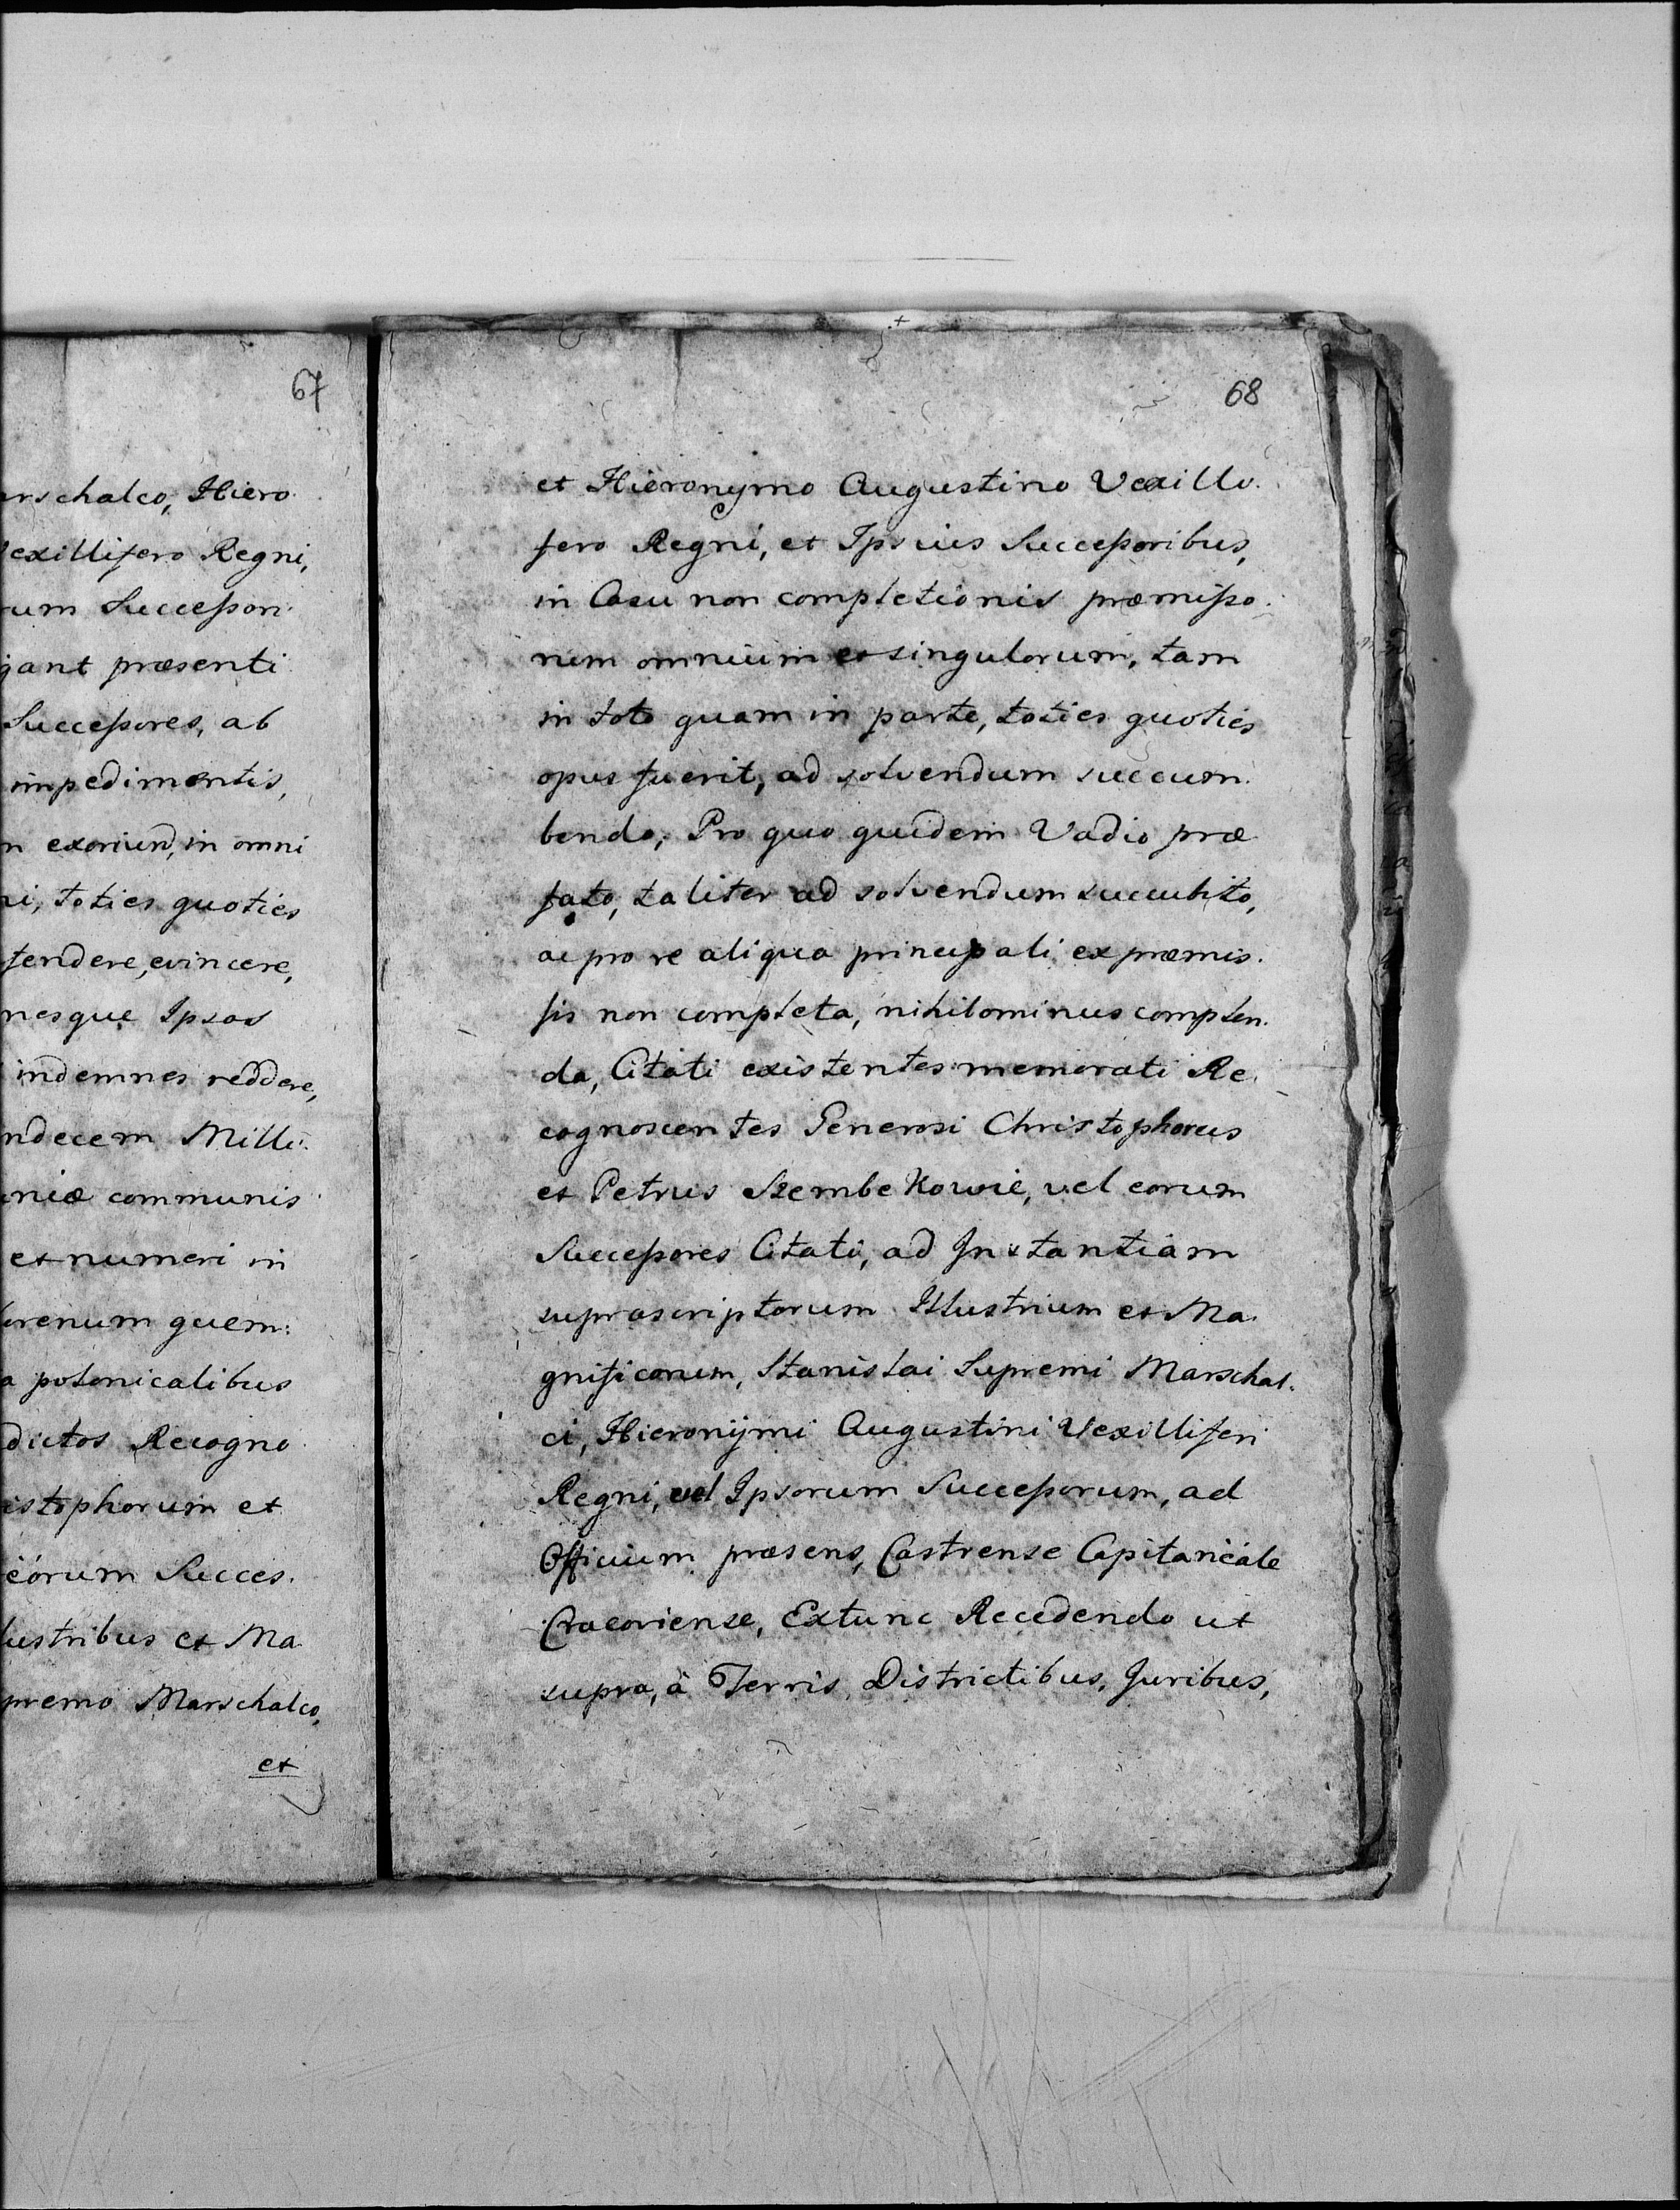 67
arschalco, Hiero
Vexillifero Regni,
rum Successori
gant præsenti
Successores, ab
impedimentis,
n exoriund, in omni
ri, toties quoties
tendere, evincere,
nesque Ipsos
indemnes reddere,
ndecem Milli:
niæ communis
et numeri in
orenum quem:
a polonicalibus
dictos Recogno
istophorum et
eorum Succes.
lustribus et Ma
premo Marschalco,
et
68
et Hieronymo Augustino Vexilli.
fero Regni, et Ipsius Successoribus,
in Casu non completionis præmisso.
rum omnium et singulorum, tam
in toto quam in parte, toties quoties
opus fuerit, ad solvendum succum.
bendo; Pro quo quidem Vadio præ
fato, taliter ad solvendum succubito,
ac pro re aliqua principali ex præmis.
sis non completa, nihilominus complen.
da, Citati existentes memorati Re.
cognoscentes Generosi Christophorus
et Petrus Szembekowie, vel eorum
Successores Citati, ad Instantiam
suprascriptorum Illustrium et Ma.
gnificorum, Stanislai Supremi Marschal.
ci, Hieronÿmi Augustini Vexilliferi
Regni, vel Ipsorum Successorum, ad
Officium præsens, Castrense Capitaneale
Cracoviense, Extunc Recedendo ut
supra, à Terris, Districtibus, Juribus,